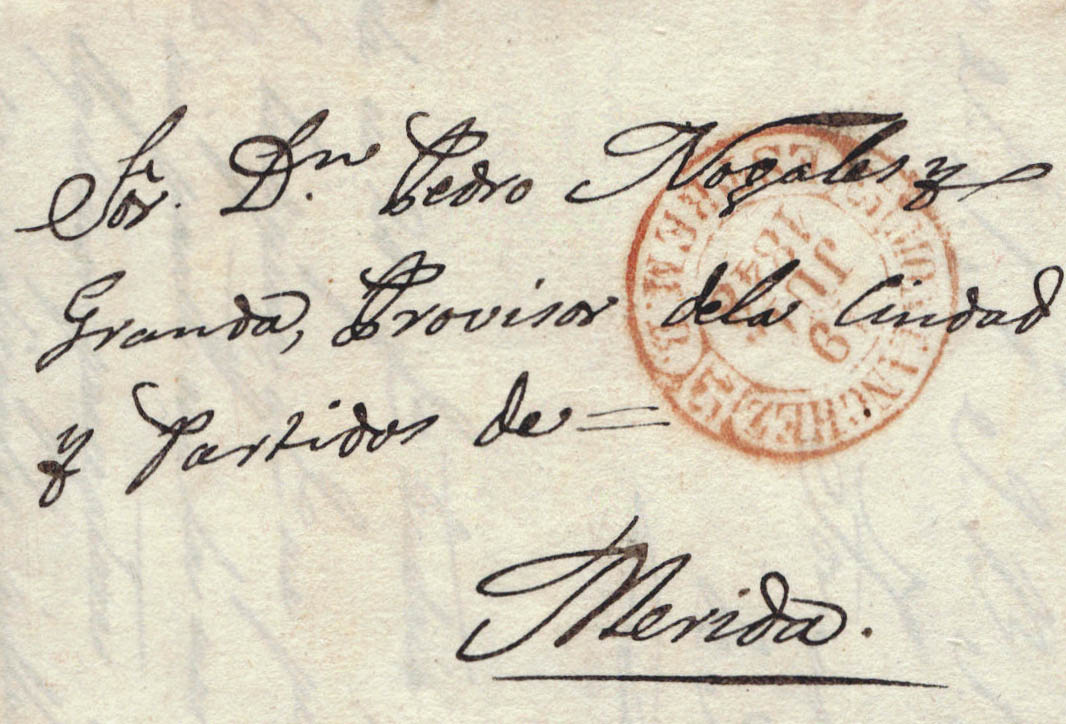 Sor. Dn. Pedro Nogales y
Granda, Provisor dela Ciudad
y Partidos de =
Merida.
9
JUL
184